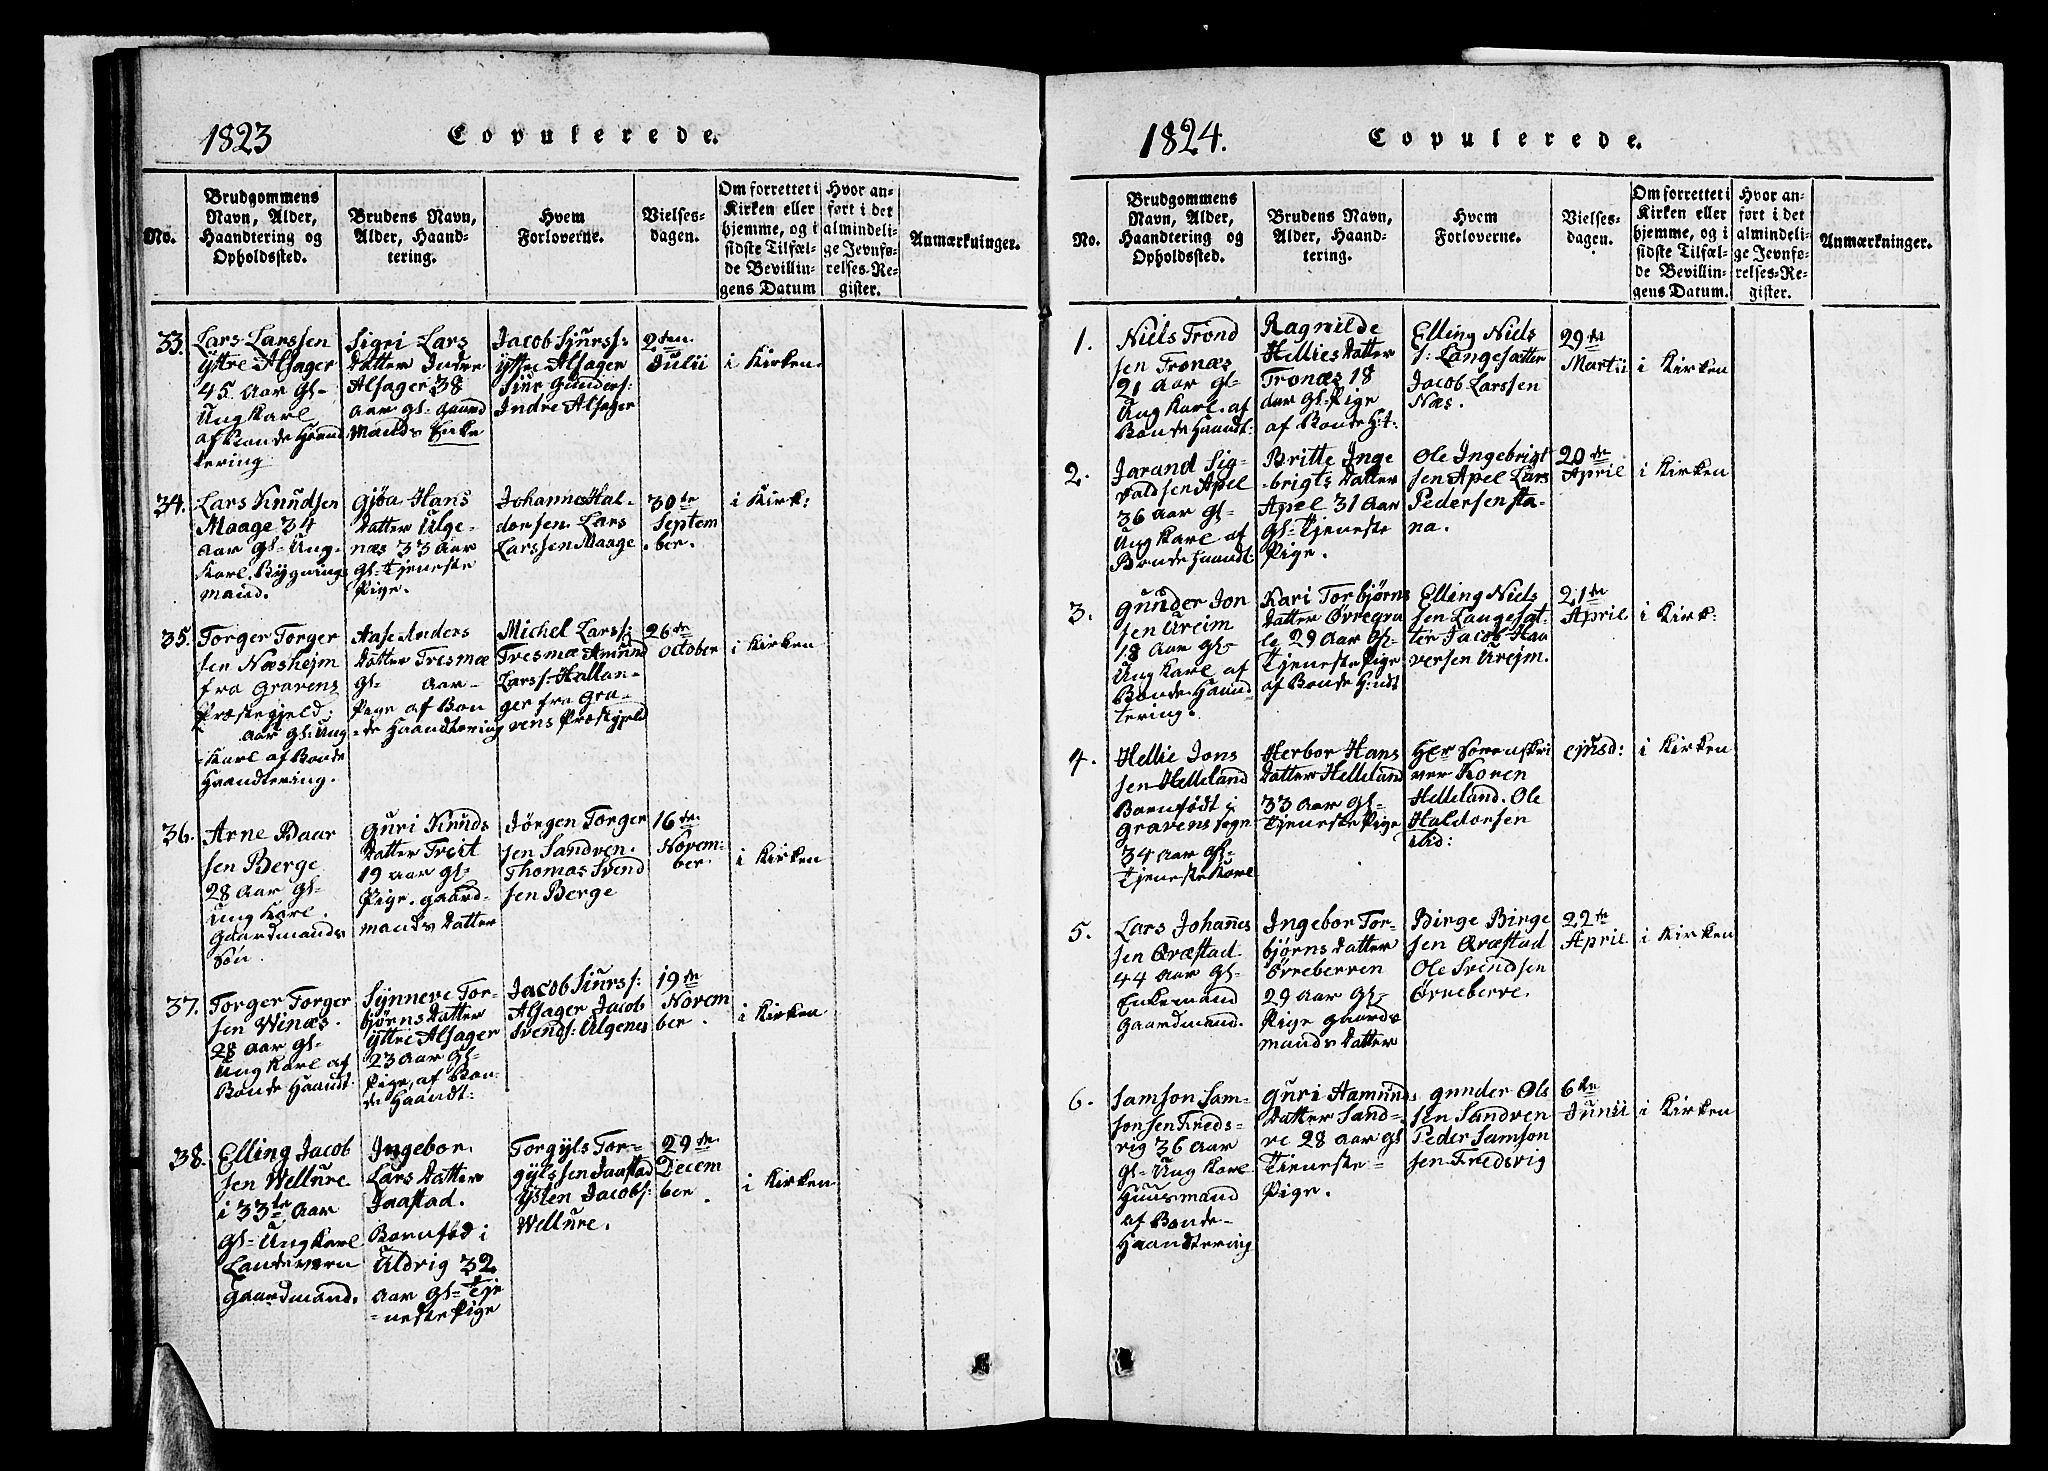 1823 Copulerede.
No.
Brudgommens
Navn, Alder,
Haandtering og
Opholdssted.
Brudens Navn,
Alder, Haand-
tering.
Hvem
Forloverne.
Vielses-
dagen.
Om forrettet i
Kirken eller
hjemme, og i
sidste Tilfæl-
de Bevillin-
gens Datum
Hvor an-
ført i det
almindeli-
ge Jevnfø-
relses-Re-
gister.
Anmærkninger.
33.
Lars Larssen
Ÿttre Alsager
45. Aar Gl-
Ung Karl
af Bonde Haand
tering
Sigri Lars
Datter Indre
Alsager 38
Aar Gl- Gaard
Mands Enke
Jacob Sjurss:
ÿttre Alsager
Siur Gunders:
Indre Alsager
2den
Julii
i Kirken.
34.
Lars Knudsen
Maage 34
Aar Gl- Ung-
Karl. Bygnings
mand.
Gjøa Hans
Datter Ulge-
næs 33 Aar
Gl- Tjeneste
Pige.
Johannes Hal-
dorsen. Lars
Larssen Maage
30te
Septem
ber.
i Kirk:
35.
Torger Torger
sen Næshejm
fra Gravens
Præstegjeld.
Aar Gl: Ung
Karl af Bonde
Haandtering.
Aase Anders
Datter Tresmæ
Gl- Aar-
Pige af Bon
-de Haandtering
Michel Larss:
Tresmæ Amund
Larss: Hallan-
ger fra Gra-
vens Præstgjeld
26de
October
i Kirken
36.
Arne Baar
sen Berge
28 Aar Gl-
Ung Karl.
Gaardmands
Søn.
Guri Knuds
Datter Freit
19 Aar Gl-
Pige. Gaard-
mands Datter
Jørgen Torger
sen Sandven.
Thomas Svend
sen Berge
16de
Novem-
ber.
i Kirken
37.
Torger Torger
sen Winæs.
28 Aar Gl-
Ung Karl af
Bonde Haandt.
Synneve Tor-
bjørns Datter
ÿttre Alsager
23 Aar Gl-
Pige, af Bon-
de Haandt:
Jacob Siurss:
Alsager Jacob
Svends: Ulgenes
19de
Novem
ber.
i Kirken
38.
Elling Jacob
sen Wellure
i 33te Aar
Gl- Ung Karl
Landevern
Gaardmand.
Ingebor
Lars Datter
Jaastad.
Barnfød i
Uldrig 32
Aar Gl- Tje
-neste Pige
Torgÿls Tor-
gÿlssen Jaastad
Ÿsten Jacobs:
Wellure.
29de
Decem
ber
i Kirken
1824. Copulerede.
No.
Brudgommens
Navn, Alder,
Haandtering og
Opholdssted.
Brudens Navn,
Alder, Haand-
tering.
Hvem
Forloverne.
Vielses-
dagen.
Om forrettet i
Kirken eller
hjemme, og i
sidste Tilfæl-
de Bevillin-
gens Datum.
Hvor an-
ført i det
almindeli-
ge Jevnfø-
relses-Re-
gister.
Anmærkninger.
1.
Niels Trond
sen Tronæs
21 Aar Gl-
Ung Karl. af
Bonde Haandt:
Ragnilde
Hellies Datter
Tronæs 18
Aar Gl- Pige
af Bonde H:t:
Elling Niels
s: Langesætter
Jacob Larssen
Næs.
29de
Martii
i Kirken
2.
Jarand Sig-
valdsen Apel
36 Aar Gl-
Ung Karl af
Bonde Haandt:
Britte Inge
-brigts Datter
Apel 31 Aar
Gl- Tjeneste
Pige.
Ole Ingebrigt
sen Apel Lars
Pedersen Sta-
na.
20de
April
i Kirken
3.
Gunder Jon
sen Ureim
18 Aar Gl-
Ung Karl af
Bonde Haand-
tering.
Kari Torbjørns
Datter Øvregra
le 29 Aar Gl-
Tjeneste Pige
af Bonde H:ndt
Elling Niels
sen Langesæt-
ter Jacob Haa
versen Urejm.
21de
April
i Kirk:
4.
Hellie Jons
sen Helleland
Barnfødt i
Gravens Sogn
34 Aar Gl-
Tjeneste Karl
Herbor Hans
Datter Helleland
33 Aar Gl-
Tjeneste Pige
Her Sorenskri
ver Koren
Helleland. Ole
Haldorsen
ibid:
ejusd:
i Kirken
5.
Lars Johannes
sen Qræstad
44 Aar Gl-
Enkemand
Gaardmand.
Ingebor Tor-
bjørns Datter
Ørreberren
29 Aar Gl-
Pige Gaards
mands Datter
Birge Birge
sen Qræstad
Ole Svendsen
Ørreberre.
22de
April
i Kirken
6.
Samson Sam-
sonsen Freds-
vig 36 Aar
Gl- Ung Karl
Huusmand
af Bonde-
Haandtering
Guri Aamunds
Datter Sand-
ve 28 Aar Gl
Tieneste-
Pige.
Gunder Ols
sen Sandven
Peder Samson
sen Fredsvig
6te
Junii
i Kirken